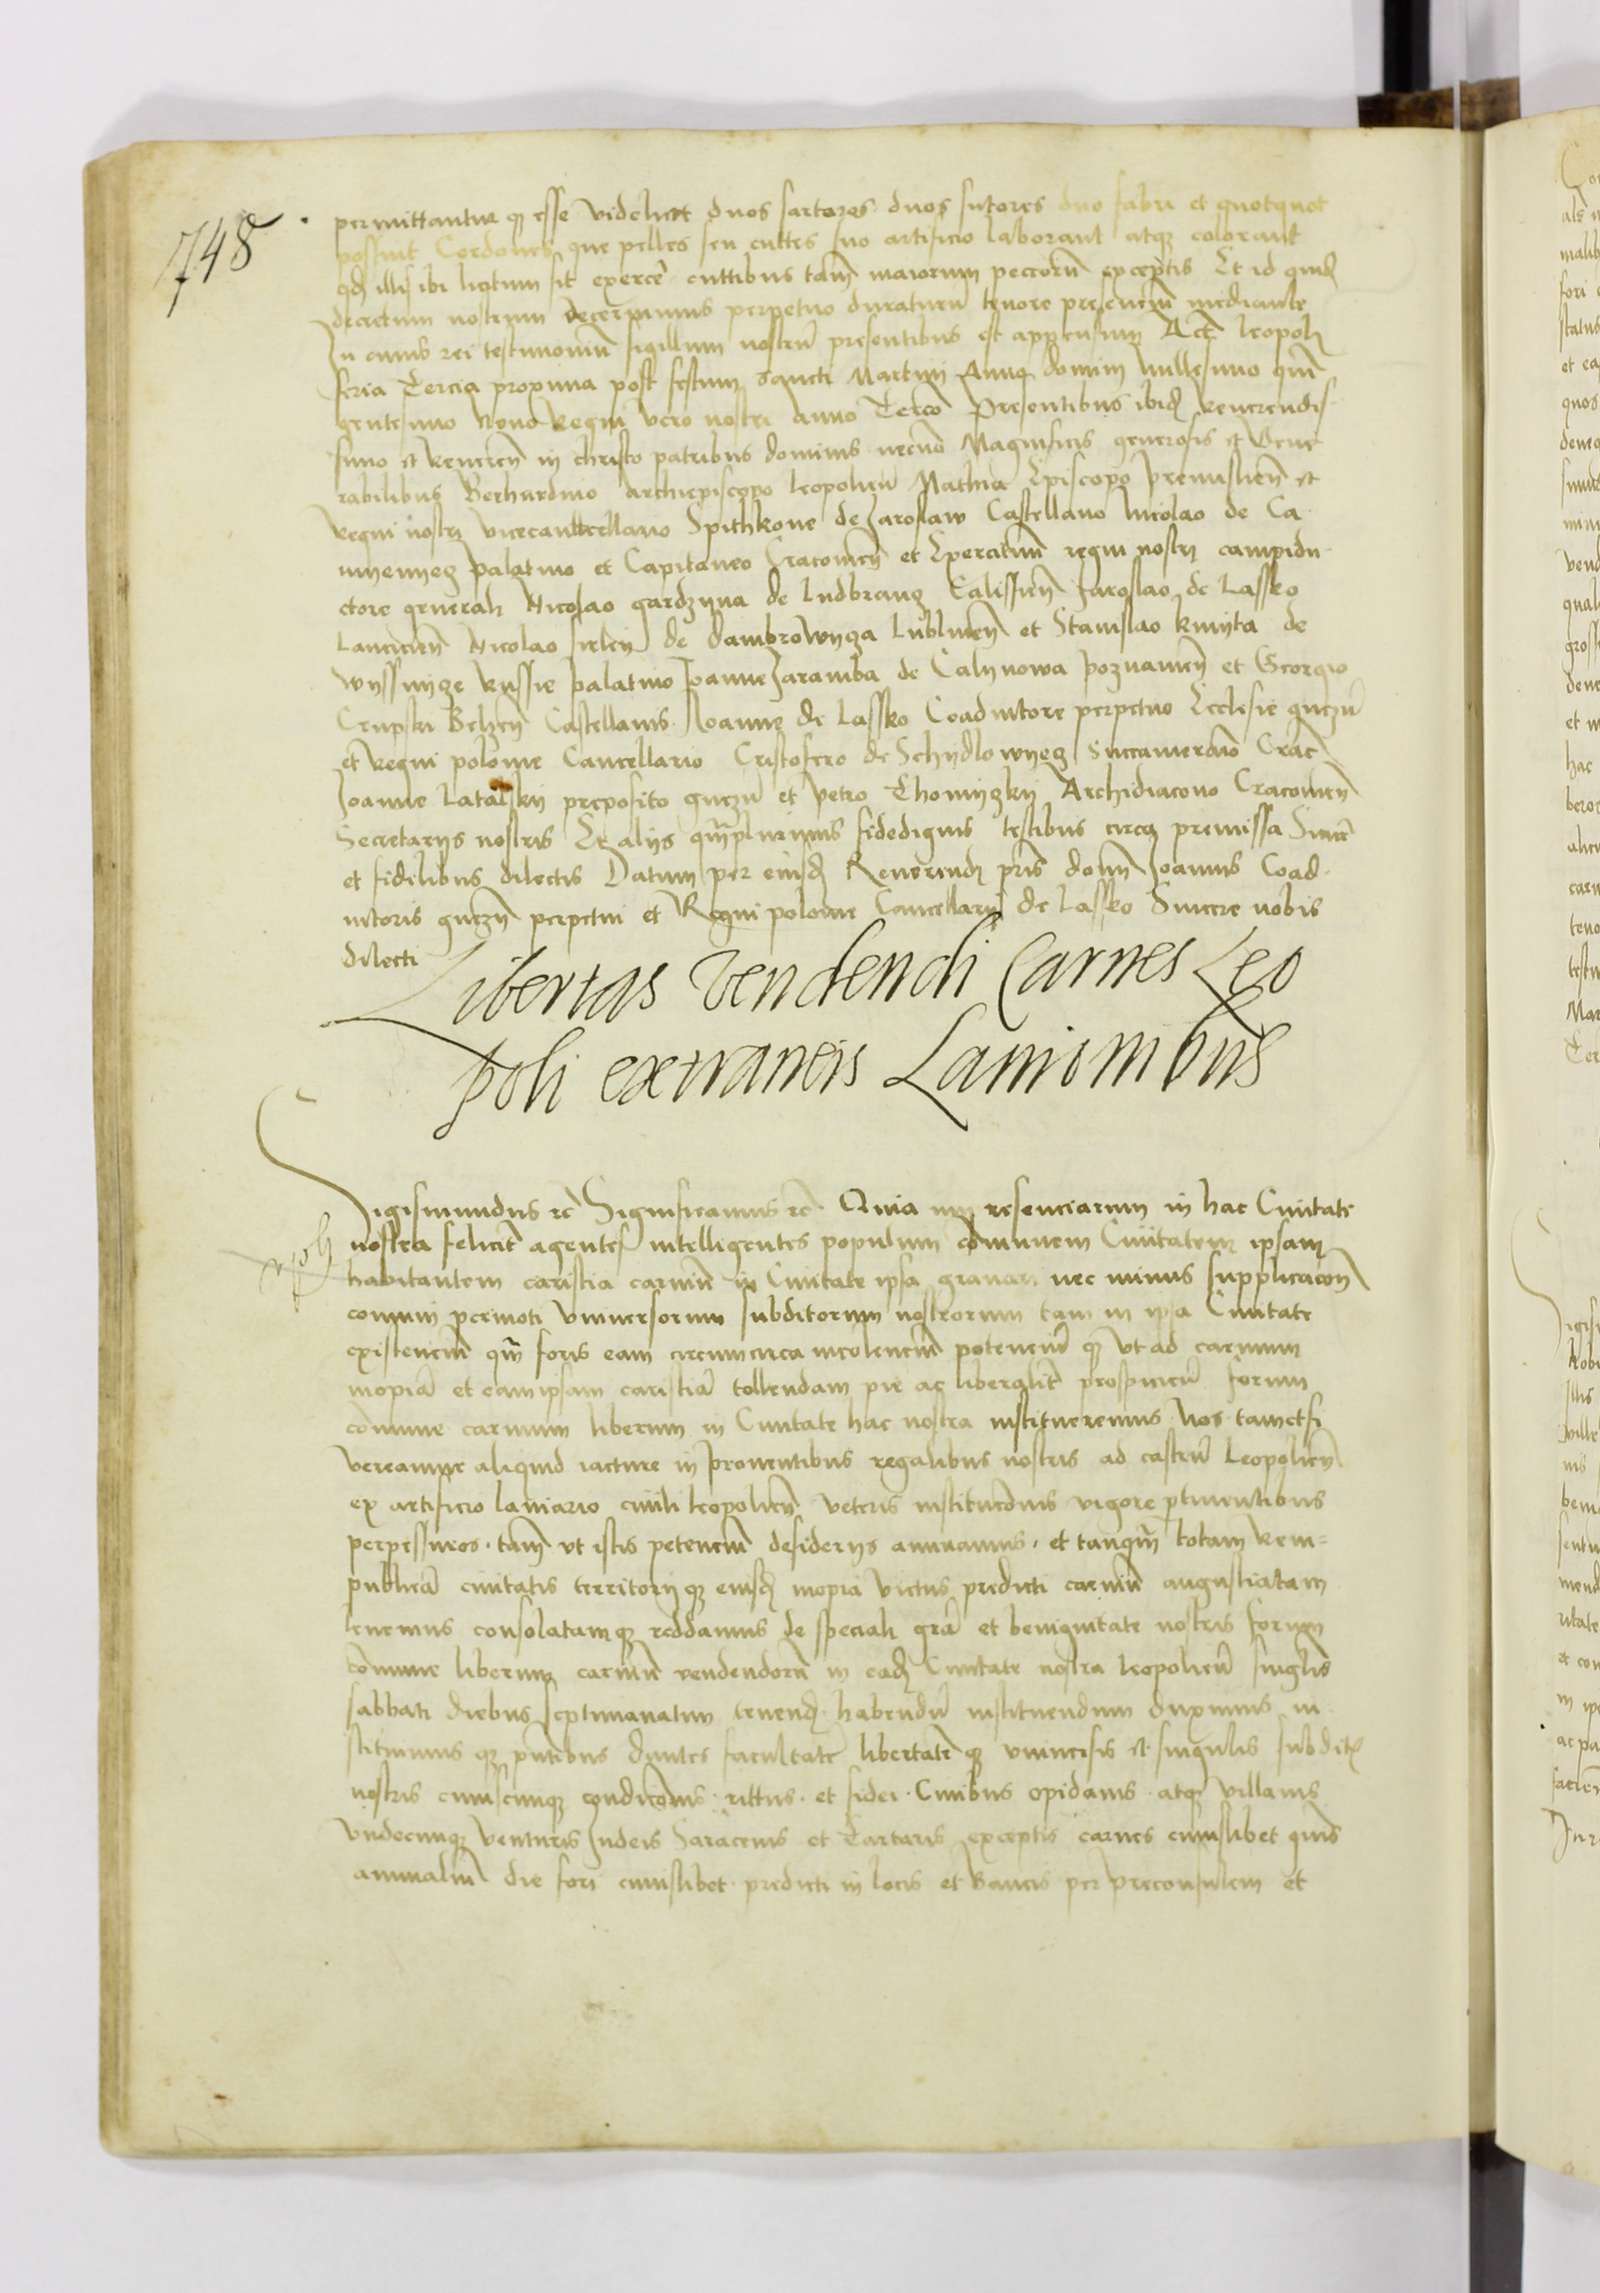 748
permittantur q esse videlicet duos sartores duos sutores duo fabri et quotquot
possunt Cerdones que pelles seu cuttes suo artificio laborant atq colorant
qd illis ibi licitum sit exerce cuttibus tam maiorum peccoru exceptis Et id quid
decretum nostrum decernimus perpetuo duraturu tenore presenciu mediante
In cuius rei testimoniu sigillum nostru presentibus est appensum Act Leopoli
feria Tercia proxima post festum sancti Martini Anno domini millesimo quin
gentesimo Nono Regni vero nostri anno Tercio Presentibus ibid Reverendis
simo et Reveren in christo patribus dominis necno Magnificis generosis et Vene
rabilibus Berhardino archiepiscopo leopolien Mathia Episcopo premislien et
regni nostri vicecancellario Spithkone de Jaroslaw Castellano Nicolao de Ca
myenyecz palatino et Capitaneo Cracovien et Exercituu regni nostri campidu
ctore generali Nicolao gardzyna de ludbrancz Calissien Jaroslao de Lassko
Lancicien Nicolao firley de dambrowycza Lublinen et Stanislao kmyta de
wyssnycze Russie palatino Joanne Jaramba de Calynowa poznanien et Georgio
Crupski Belzen Castellanis Joanne de Lassko Coadiutore perpetuo Ecclesie gnezn
et Regni polonie Cancellario Cristofero de Schydlowyecz Succamerario Crac
Joanne Latalsky preposito gnezn et Petro Thomyczky Archidiacono Cracovien
Secretarys nostris Et alys qmplurimis fidedignis testibus circa premissa Since
et fidelibus dilectis Datum per eiusd Reverendi pris domi Joannis Coad
iutoris gnezn perpetui et Regni polonie Cancellarij de Lassko Sincere nobis
dilecti
Libertas vendendi Carnes Leo
poli extraneis Lanionibus
Sigismundus rc Significamus rc Quia nos resenciarum in hac Civitate
nostra felicit agentes intelligentes populum comunem Civitatem ipsam
habitantem caristia carniu in Civitate ipsa gravari nec minus supplicacon
comuni permoti Universorum subditorum nostrorum tam in ipsa Civitate
existenciu qm foris eam circumcirca incolenciu potenciu q ut ad carnium
inopia et eam ipsam caristia tollendam pie ac liberalit prospiceru forum
comune carnium liberum in Civitate hac nostra institueremus Nos tametsi
vereamur aliquid iacture in proventibus regalibus nostris ad castru Leopolien
ex artificio laniario civili leopolien veteris institucionis vigore ptinentibus
perpessuros tam ut istis petenciu desiderys annuamus et tanqm totam Rem=
publica civitatis territorijq eiusd inopia victus predicti carniu angustiatam
levemus consolatamq reddamus de speciali gra et benignitate nostris forum
comune liberum carniu vendendoru in ead Civitate nostra leopolien singlis
sabbati diebus septimanatim tenend habendu instituendum duximus in
stituimus q pntibus dantes facultate libertate q universis et singulis subdit
nostris cuiuscunq condicionis rittus et fidei Civibus opidanis atq villanis
undecunq venturis Judeis Saracenis et Tartaris exceptis carnes cuiuslibet gnis
animaliu die fori cuiuslibet predicti in locis et bancis per preconsulem et